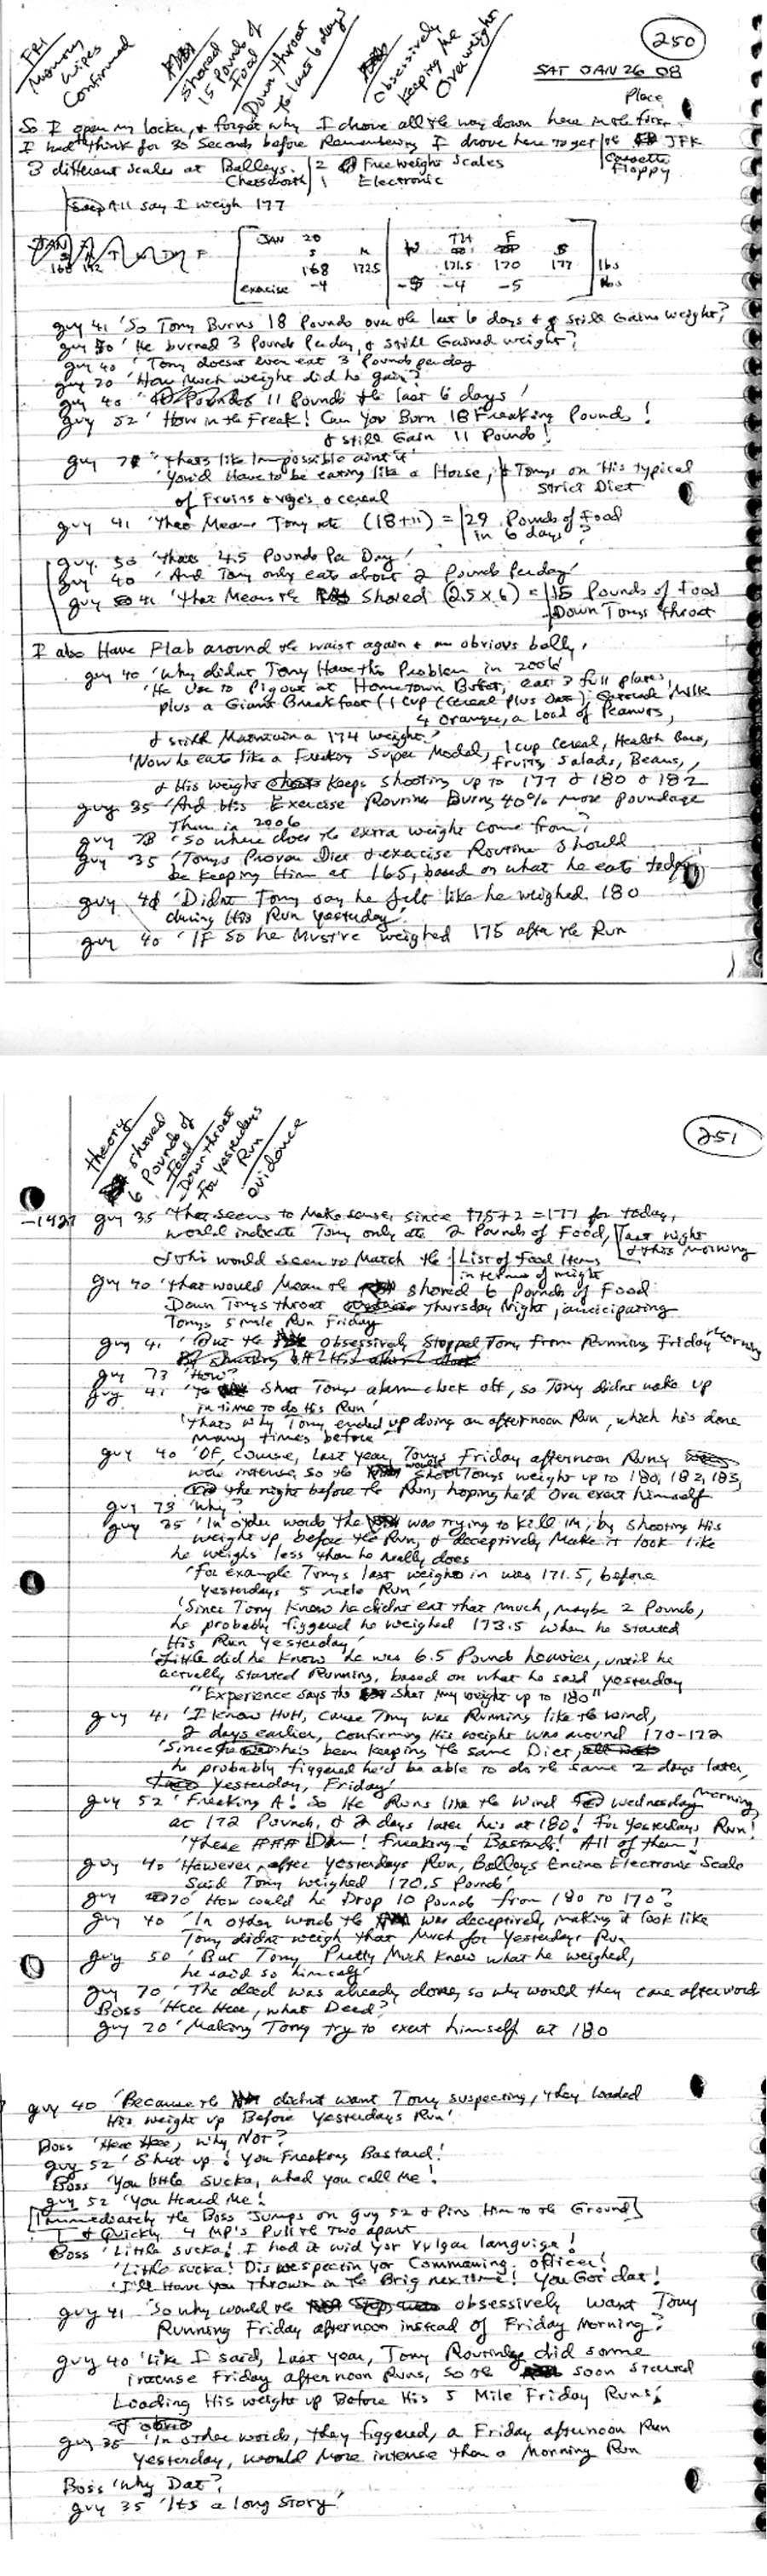 250
SAT JAN 26 08
FRI
Memory
Wipes
Confirmed
shoved
15 Pounds of
Food
Down throat
last 6 days
Obsessively
Keeping me
Overweight
Place
So I open my locker, & forget why I drove all the way down here in the first
I had think for 30 seconds before Remembering I drove here to get JFK
Cassette
Floppy
3 different scales at Balleys. 2 Free weight Scales
Chatsworth 1 Electronic
All say I weigh 177
JAN 20 TH F
S M W S
168 172.5 171.5 170 177 lbs
exercise -4 -5 -4 -5 lbs
guy 41 'So Tony Burns 18 Pounds over the last 6 days & still Gains weight?
guy 50 'He burned 3 Pounds Per day, & still Gained weight?
guy 40 'Tony doesnt even eat 3 Pounds per day
guy 70 'How Much weight did he gain?
guy 40 '11 Pounds the last 6 days'
guy 52 'How in the Freak! Can You Burn 18 Freaking Pounds!
& still Gain 11 Pounds!
guy 'thats like Impossible aint it'
'You'd Have to be eating like a Horse, & Tonys on His typical
Strict Diet
of Fruits & vege's & cereal
guy 41 'That Means Tony ate (18+11) = 29 Pounds of Food
in 6 days?
guy 50 'thats 4.5 Pounds Per Day'
guy 40 'And Tony only eats about 2 Pounds Per day'
guy 41 'That Means the Shoved (2.5 x 6) = 15 Pounds of Food
Down Tonys throat
I also Have Flab around the waist again & an obvious belly.
guy 40 'Why didnt Tony Have this Problem in 2006'
'He Use to Pig out at Hometown Buffet, eat 3 full plates,
plus a Giant Breakfast (1 cup Cereal plus Oat), Milk
4 Oranges, a Load of Peanuts,
& still Maintain a 174 weight.'
'Now he eats like a Freaking Super Model, 1 cup Cereal, Health Bars,
fruits, Salads, Beans,
& His weight Keeps shooting up to 177 & 180 & 182
guy 35 'And His Exercise Routine Burns 40% more Poundage
Then in 2006
guy 73 'So where does the extra weight come from?
guy 35 'Tonys Proven Diet & exercise Routine should
be Keeping Him at 165, based on what he eats today
guy 41 'Didnt Tony say he felt like he weighed 180
during His Run Yesterday'
guy 40 'IF so he Must've weighed 175 after the Run
251
theory
shoved
6 Pounds of
Food
Down throat
For yesterdays
Run
evidence
guy 35 'That seems to Make sense, since 175+2 = 177 for today,
would indicate Tony only ate 2 Pounds of Food, last night
& this morning
& this would seem to Match the List of Food Items
in terms of weight
guy 40 'that would Mean the shoved 6 Pounds of Food
Down Tonys throat Thursday Night, anticipating
Tonys 5 mile Run Friday
guy 41 'But the Obsessively Stopped Tony from Running Friday Morning
guy 73 'How?'
guy 41 'To Shut Tonys alarm clock off, so Tony didnt wake up
in time to do His Run'
'thats why Tony ended up doing an afternoon Run, which he's done
Many times before'
guy 40 'OF course, Last year, Tonys Friday afternoon Runs
were intense, so the would shoot Tonys weight up to 180, 182, 183,
the night before the Run, hoping he'd Over exert himself
guy 73 'Why?'
guy 35 'In other words the was trying to Kill im, by shooting His
weight up before the Run, & deceptively Make it look like
he weighs less than he really does
'For example Tonys last weigh in was 171.5, before
yesterdays 5 mile Run'
'Since Tony Knew he didnt eat that much, maybe 2 Pounds,
he probably figgered he weighed 173.5 when he started
His Run Yesterday'
'Little did he Know he was 6.5 Pounds heavier, until he
actually started Running, based on what he said yesterday
"Experience says the shot my weight up to 180"
guy 41 'I Know Huh, Cause Tony was Running like the wind,
2 days earlier, confirming His weight was around 170-172
'Since he's been Keeping the same Diet,
he probably figgered he'd be able to do the same 2 days later,
Yesterday, Friday'
guy 52 'Freaking A! So He Runs like the wind Wednesday Morning,
at 172 Pounds, & 2 days later he's at 180! For Yesterdays Run!
'These ### Freaking! Bastards! All of them!
guy 40 'However, after Yesterdays Run, Balleys Encino Electronic Scale
Said Tony weighed 170.5 Pounds'
guy 70 'How could he Drop 10 Pounds from 180 to 170?
guy 40 'In other words the was deceptively making it look like
Tony didnt weigh that Much for Yesterdays Run
guy 50 'But Tony Pretty Much Knew what he weighed,
he said so himself'
guy 70 'The deed was already done, so why would they care afterword
Boss 'Here Here, what Deed?'
guy 70 'Making Tony try to exert himself at 180
guy 40 'Because the didnt want Tony suspecting, they loaded
His weight up Before Yesterdays Run'
Boss 'Here Here, Why Not?
guy 52 'Shut up! You Freaking Bastard!
Boss 'You little Sucka, whad you call Me!
guy 52 'You Heard Me!
[Immediately the Boss Jumps on guy 52 & Pins Him to the Ground]
& Quickly 4 MP's Pull the Two apart
Boss 'Little sucka! I had it wid yor vulgar languige!
'Little sucka! Disrespectin yor Commaning officer!
'I'll Have you Thrown in the Brig next time! You Got dat!
guy 41 'So why would the obsessively want Tony
Running Friday afternoon instead of Friday Morning?
guy 40 'Like I said, Last year, Tony Routinely did some
intense Friday afternoon Runs, so the soon started
Loading His weight up Before His 5 Mile Friday Runs,
guy 35 'In other words, they figgered, a Friday afternoon Run
Yesterday, would More intense than a Morning Run
Boss 'Why Dat?
guy 35 'Its a long story'